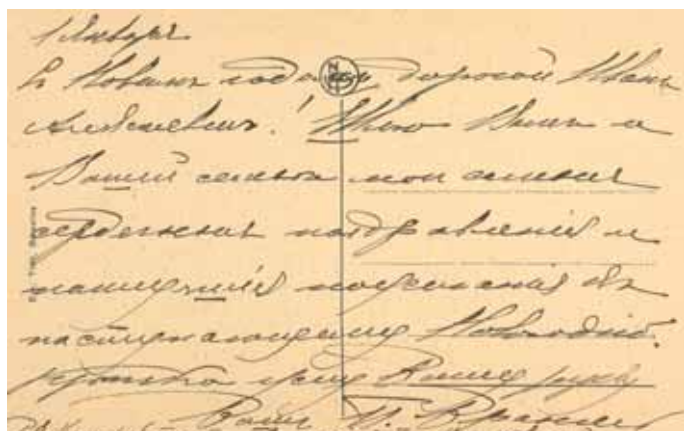 1 Января
Съ Новымъ годомъ дорогой Иванъ
Алексѣевичъ! Шлю Вамъ и
Вашей семьѣ мои самыя
сердечныя поздравленія и
наилучшія пожеланія въ
наступающемъ Новолѣтіи.
жму Вашу руку
Вашъ П. Врангель